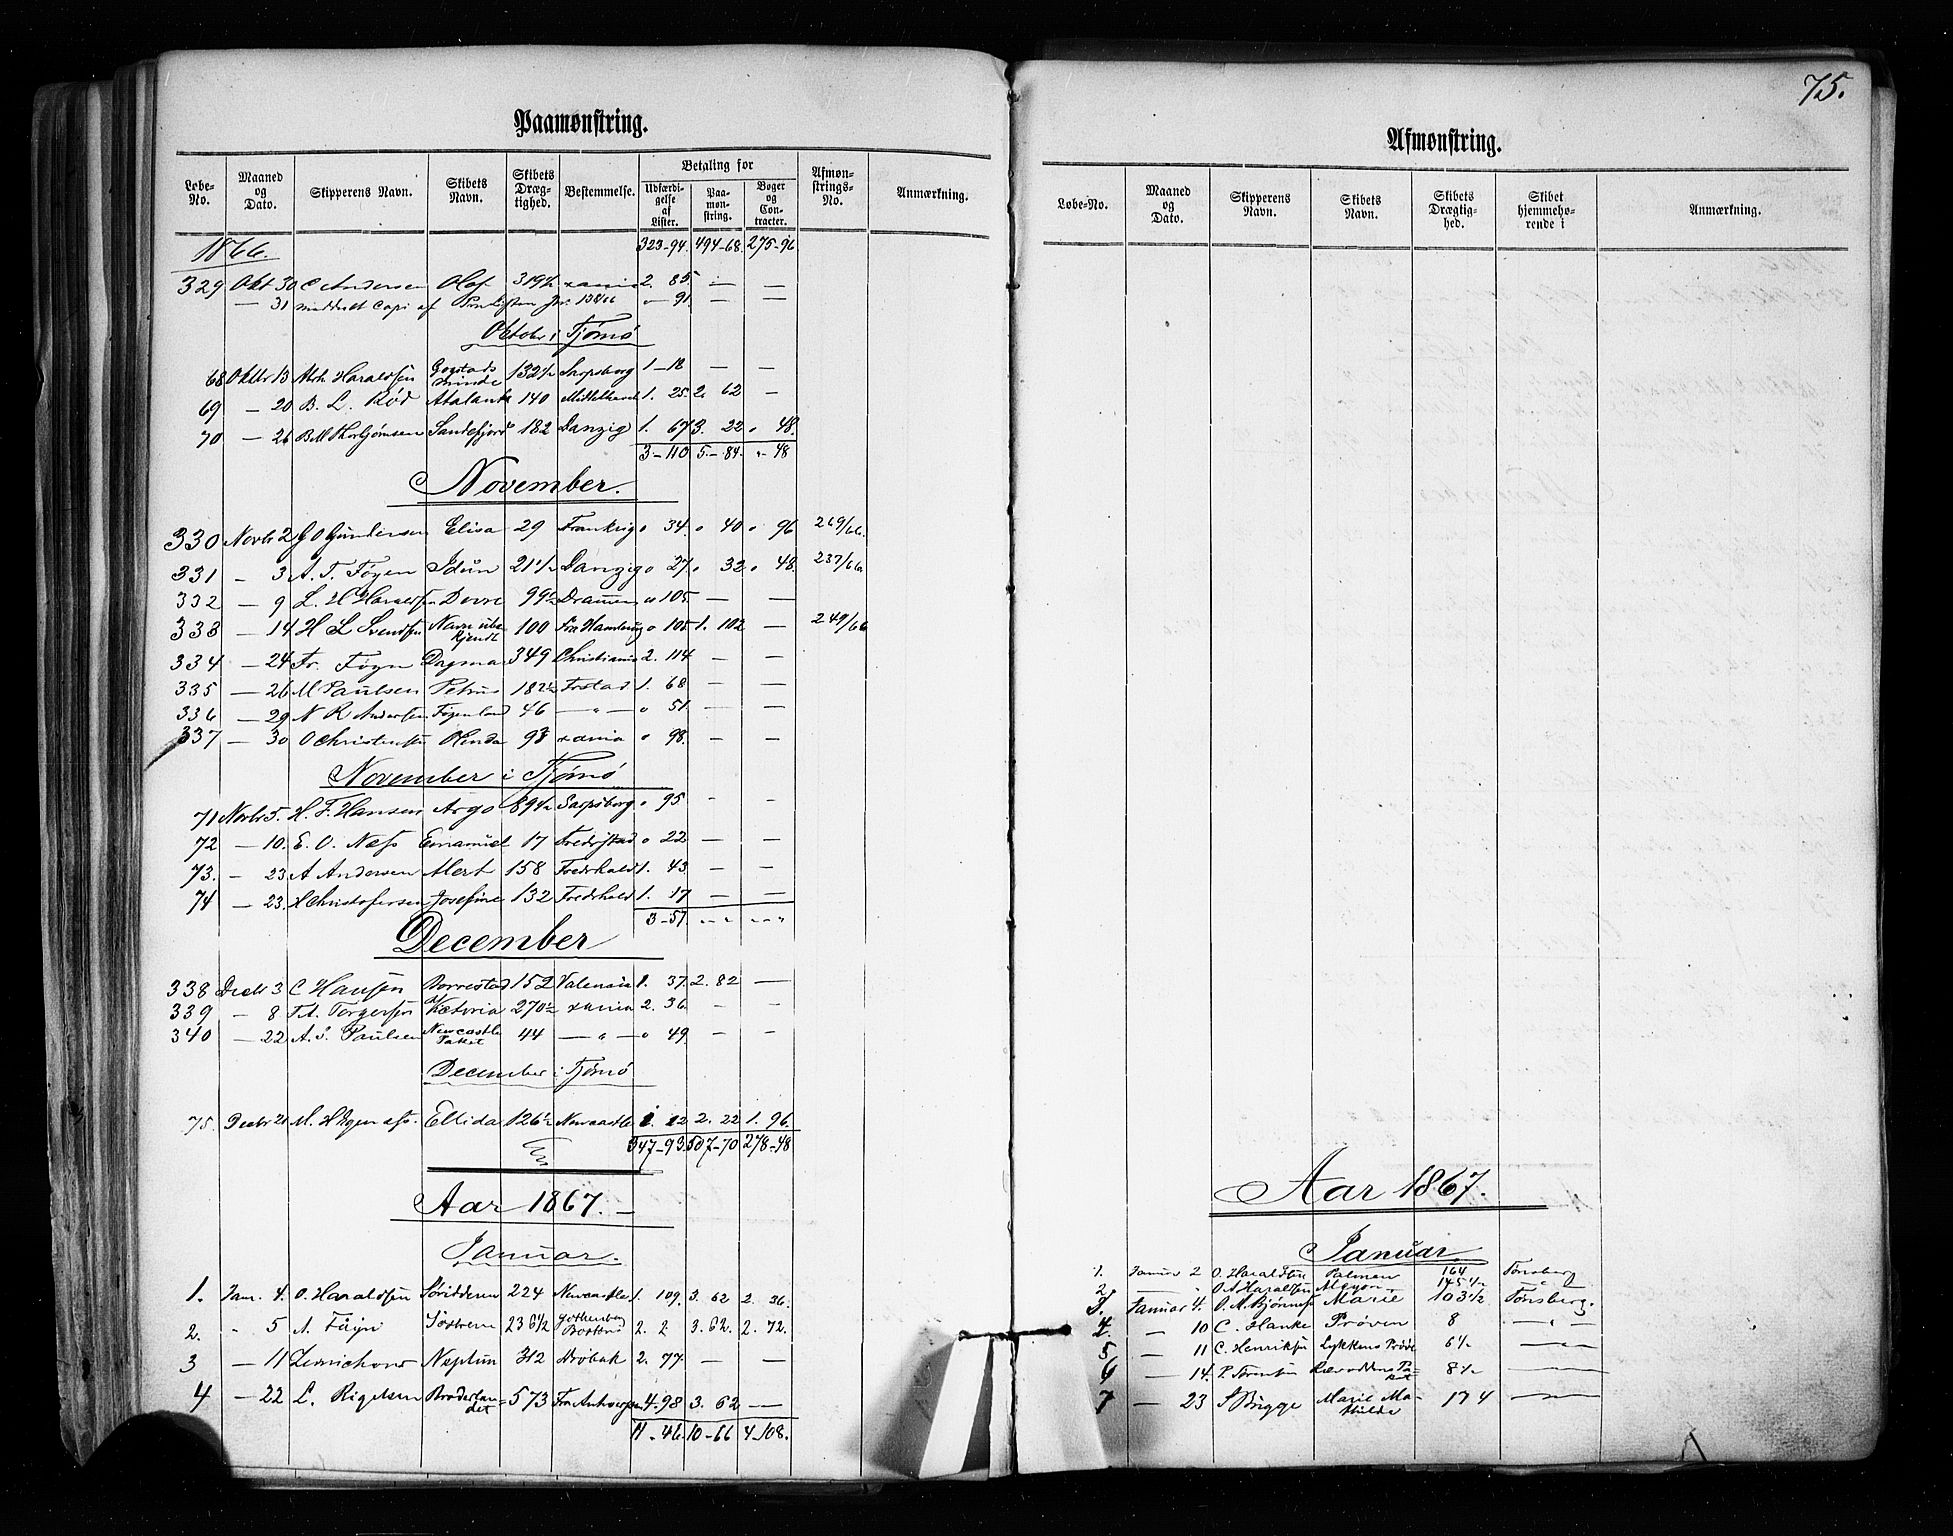 75.
Paamønstring.
Løbe-No. Maaned og Dato. Skipperens Navn. Skibets Navn. Skibets Dræg-tighed. Bestemmelse. Betaling for Udfærdi-gelse af Lister. Paa-møn-string. Bøger og Con-tracter. Afmøn-strings-No. Anmærkning.
1866. 323-94. 494-68. 275-96
329 Okt 30 C Andersen Olaf 319½ xania 2. 85. — —
— 31 meddelt Copi af 138/66 " 91. — —
Oktober i Tjømø
68 Oktbr 13 Haraldsen Gogstads minde 132½ Sarpsborg 1-18 — —
69 — 20 B. L. Rød Atalanta 140 Middelhavet 1. 25. 2. 62 —
70 — 26 Thorbjørnsen Sandefjord 182 Danzig 1. 67 3. 22 " 48.
3-110 5-84. "-48
November.
330 Novbr 2 G O Gundersen Elisa 29 Frankrig " 34. " 40 " 96 269/66.
331 — 3 A. T. Føyen Idun 21½ Danzig " 27. " 32 " 48. 237/66
332 — 9 L. H Haraldsen Dovre 99½ Drammen " 105. — —
333 — 14 H L Svendsen Navn ube kjendt 100 Fra Hamburg " 105 1. 102 — 249/66
334 — 24 Fr. Føyn Dagmar 349 Christiania 2. 114 — —
335 — 26 M Paulsen Petrus 182½ Frstad 1. 68 — —
336 — 29 N R Andersen Føyenland 46 — " — " 51. — —
337 — 30 O Christensen Olinda 93 xania " 98. — —
November i Tjømø
71 Novbr 5. H. F. Hansen Argo 89½ Sarpsborg " 95 — —
72 — 10. E. O. Næss Emanuel 17 Fredrstad " 22 — —
73. — 23. A Andersen Alert 158 Fredrhald 1. 43. — —
74 — 23. H Christofersen Josefine 132 Fredrhald 1. 17 — —
3-57. " - " " - "
December
338 Decbr 3 C Hansen Borrestad 152 Valencia 1. 37. 2. 82 —
339 — 8 T. A. Torgersen Victoria 270½ xania 2. 36. — —
340 — 22 A. S. Paulsen Newcastle Paket 44 — " — " 49. — —
December i Tjømø
75. Decbr 21 M. H Ellida 126½ Newcastle 1. 12 2. 22 1. 96.
347-93. 507-70 278-48
Aar 1867.
Januar.
1. Janr. 4. O. Haraldsen 224 Newcastle 1. 109. 3. 62 2. 36.
2. " 5 A. Føyn Søstrene 236½ Gothenborg 2. 2 3. 62. 2. 72.
3 — 11 Neptun 312 Drøbak 2. 77. — —
4 — 22 L. Rigelsen Broderlan det 573 Fra Antwerpen 4. 98 3. 62 —
11-46. 10-66 4-108.
Afmønstring.
Løbe-No. Maaned og Dato. Skipperens Navn. Skibets Navn. Skibets Drægtig-hed. Skibet hjemmehø-rende i Anmærkning.
Aar 1867.
Januar
1. Januar 2 O. Haraldsen Palmen 164 Tønsberg
2. — " O A Haraldsen 145½ "
3. Januar 4. O. M. Bjønness Marie 103½ Tønsberg.
4. — 10 C. Hanke Prøven 8 — " —
5 — 11 C. Henriksen Lykkens Prøve 6½ — " —
6 — 14. P. Sørensen Rævoddens Pa ket 8½ — " —
7 — 23 S Brygge Marie Ma thilde 174 — " —